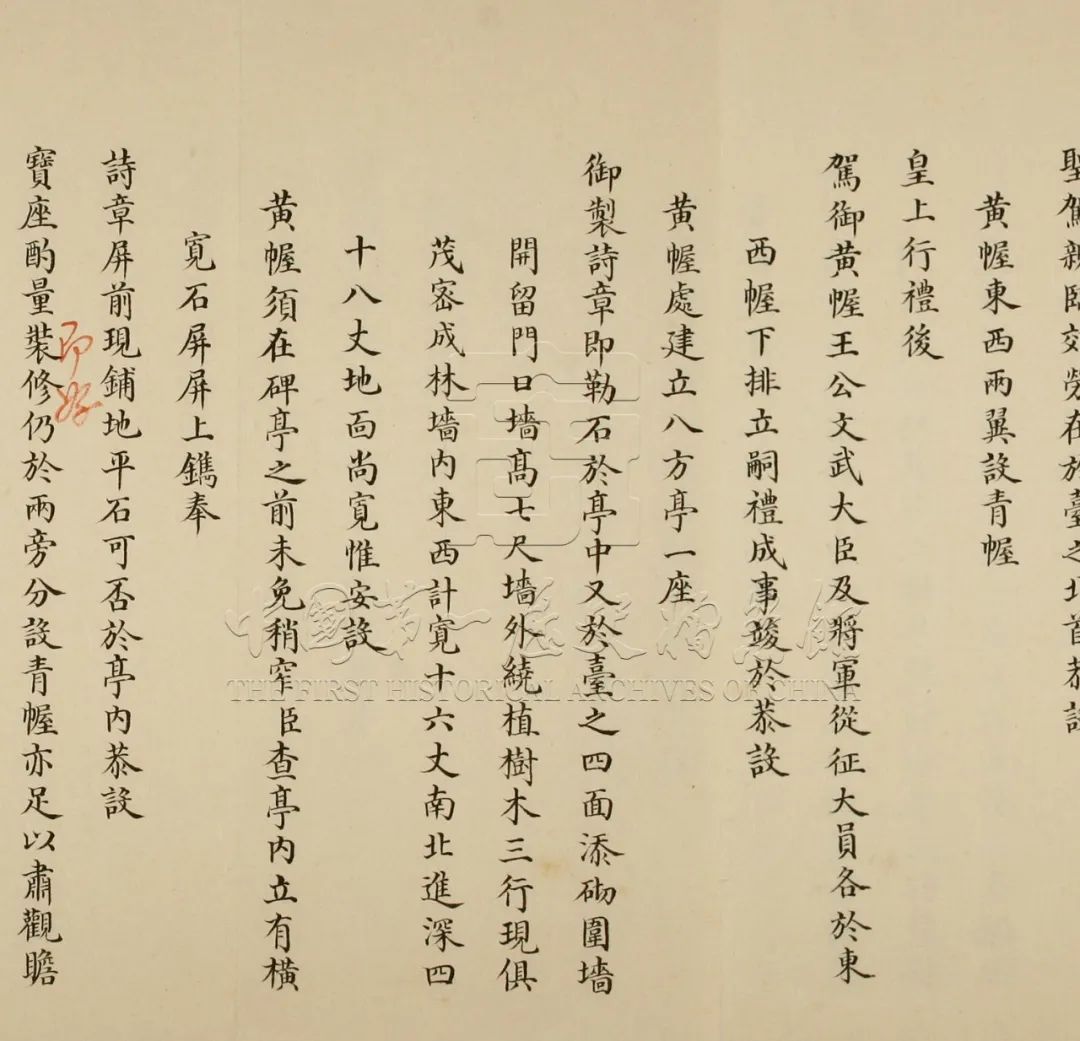 聖駕親臨郊勞在於臺之北首恭設
黃幄東西兩翼設青幄
皇上行禮後
駕御黃幄王公文武大臣及將軍從征大員各於東
西幄下排立嗣禮成事竣於恭設
黃幄處建立八方亭一座
御製詩章即勒石於亭中又於臺之四面添砌圍墻
開留門口墻高七尺墻外繞植樹木三行現俱
茂密成林墻內東西計寬十六丈南北進深四
十八丈地面尚寬惟安設
黃幄須在碑亭之前未免稍窄臣查亭內立有橫
寬石屏屏上鐫奉
詩章屏前現鋪地平石可否於亭內恭設
寶座酌量裝修仍於兩旁分設青幄亦足以肅觀瞻
即好
中國第一歷史檔案館
THE FIRST HISTORICAL ARCHIVES OF CHINA